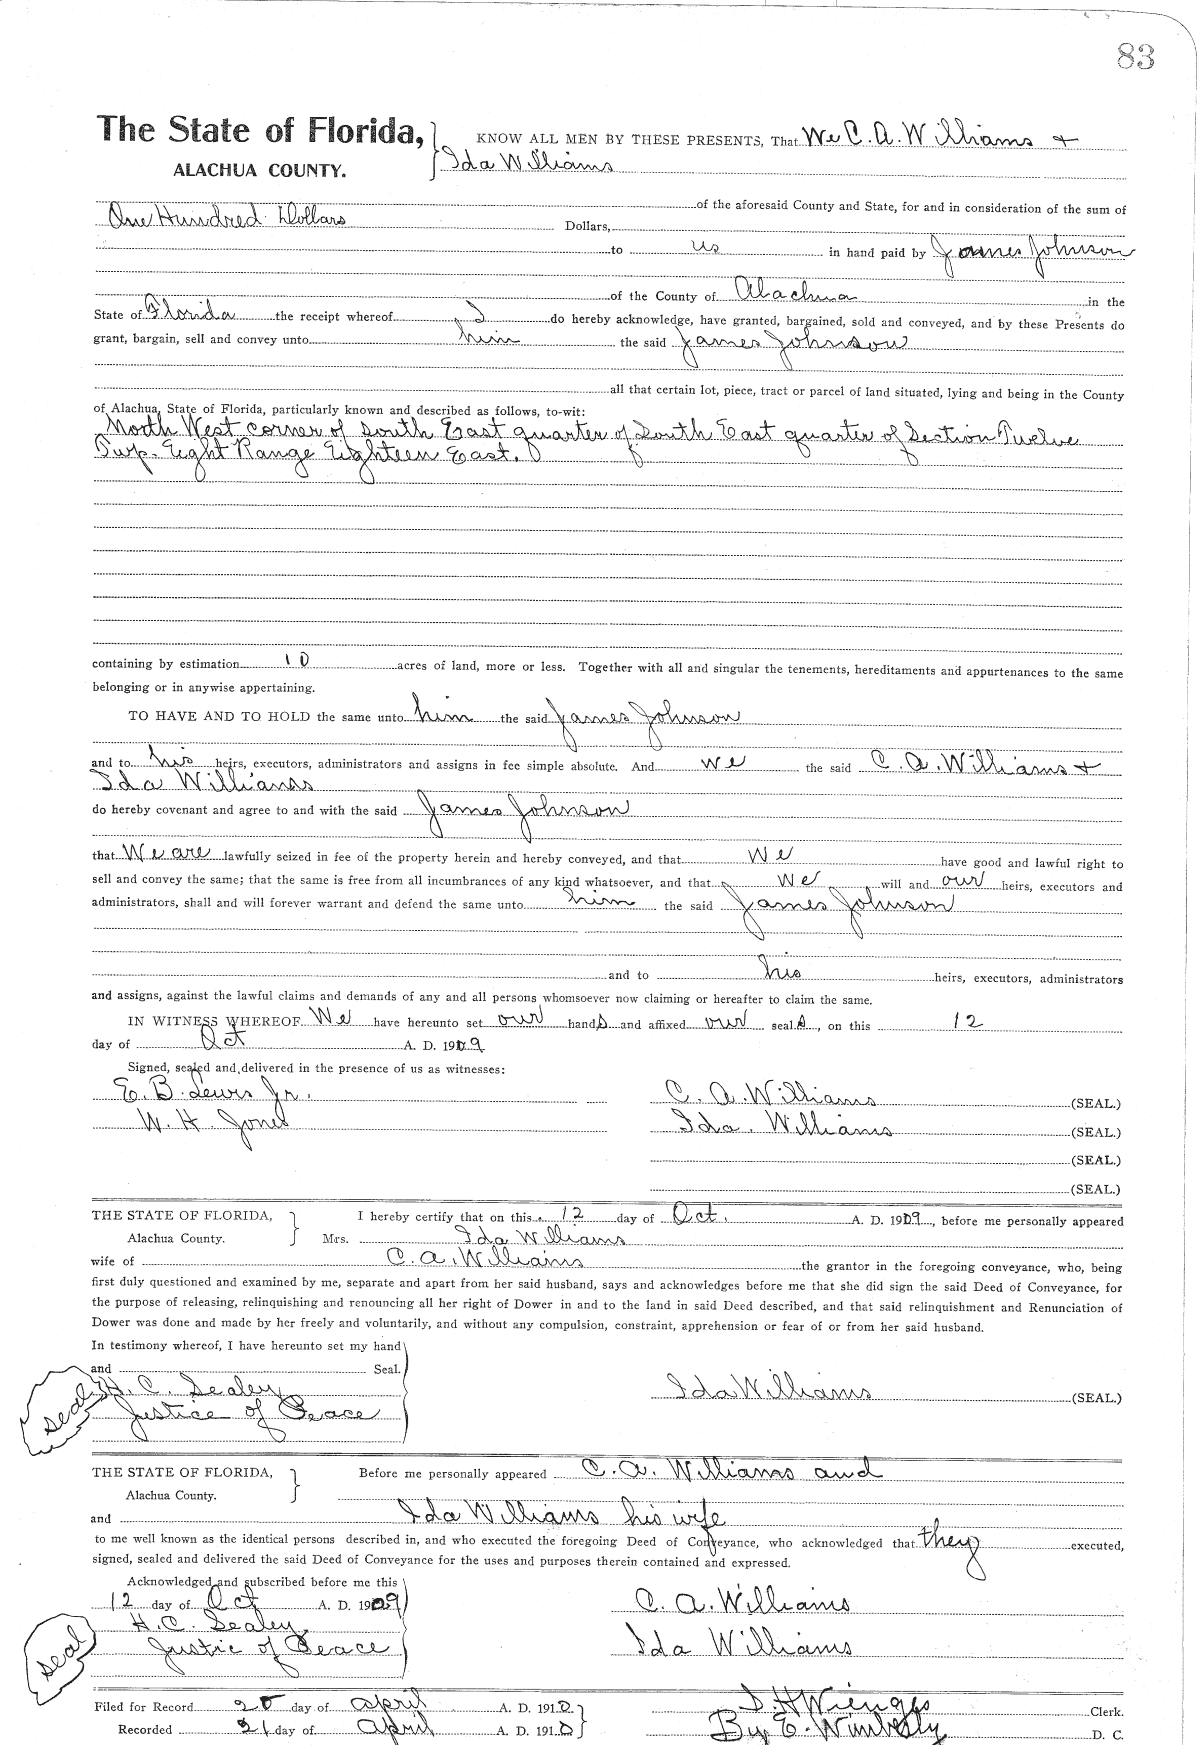 83
The State of Florida, KNOW ALL MEN BY THESE PRESENTS, That We C. A. Williams +
ALACHUA COUNTY. Ida Williams
of the aforesaid County and State, for and in consideration of the sum of
One Hundred Dollars Dollars,
to us in hand paid by James Johnson
of the County of Alachua in the
State of Florida the receipt whereof I do hereby acknowledge, have granted, bargained, sold and conveyed, and by these Presents do
grant, bargain, sell and convey unto him the said James Johnson
all that certain lot, piece, tract or parcel of land situated, lying and being in the County
of Alachua, State of Florida, particularly known and described as follows, to-wit:
North West corner of South East quarter of South East quarter of Section Twelve
Twp. Eight Range Eighteen East.
containing by estimation 10 acres of land, more or less. Together with all and singular the tenements, hereditaments and appurtenances to the same
belonging or in anywise appertaining.
TO HAVE AND TO HOLD the same unto him the said James Johnson
and to his heirs, executors, administrators and assigns in fee simple absolute. And we the said C. A. Williams +
Ida Williams
do hereby covenant and agree to and with the said James Johnson
that We are lawfully seized in fee of the property herein and hereby conveyed, and that We have good and lawful right to
sell and convey the same; that the same is free from all incumbrances of any kind whatsoever, and that We will and our heirs, executors and
administrators, shall and will forever warrant and defend the same unto him the said James Johnson
and to his heirs, executors, administrators
and assigns, against the lawful claims and demands of any and all persons whomsoever now claiming or hereafter to claim the same.
IN WITNESS WHEREOF We have hereunto set our hands and affixed our seals, on this 12
day of Oct A. D. 1909
Signed, sealed and delivered in the presence of us as witnesses:
E. B. Lewis Jr. C. A. Williams (SEAL.)
W. H. Jones Ida. Williams (SEAL.)
(SEAL.)
(SEAL.)
THE STATE OF FLORIDA, I hereby certify that on this 12 day of Oct. A. D. 1909, before me personally appeared
Alachua County. Mrs. Ida Williams
wife of C. A. Williams the grantor in the foregoing conveyance, who, being
first duly questioned and examined by me, separate and apart from her said husband, says and acknowledges before me that she did sign the said Deed of Conveyance, for
the purpose of releasing, relinquishing and renouncing all her right of Dower in and to the land in said Deed described, and that said relinquishment and Renunciation of
Dower was done and made by her freely and voluntarily, and without any compulsion, constraint, apprehension or fear of or from her said husband.
In testimony whereof, I have hereunto set my hand
and Seal.
seal H. C. Sealey Ida Williams (SEAL.)
Justice of Peace
THE STATE OF FLORIDA, Before me personally appeared C. A. Williams and
Alachua County.
and Ida Williams his wife
to me well known as the identical persons described in, and who executed the foregoing Deed of Conveyance, who acknowledged that they executed,
signed, sealed and delivered the said Deed of Conveyance for the uses and purposes therein contained and expressed.
Acknowledged and subscribed before me this
12 day of Oct A. D. 1909 C. A. Williams
H. C. Sealey,
seal Justic of Peace Ida Williams
Filed for Record 20 day of April A. D. 1910 S. H. Wienges Clerk.
Recorded 21 day of April A. D. 1910 By E. Wimberly D. C.